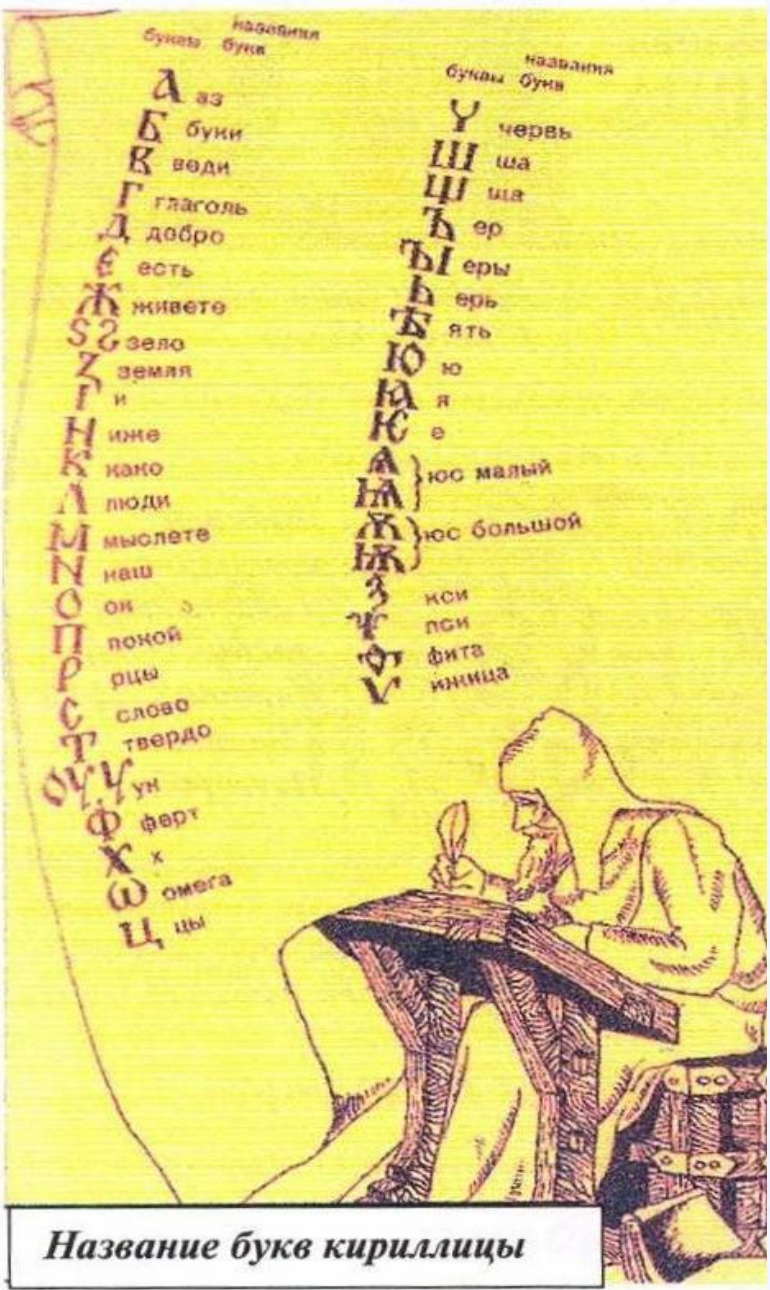 названия
буквы букв
А аз
Б буки
В веди
Г глаголь
Д добро
Є есть
Ж живете
Ѕ Ꙅ зело
Ꙁ земля
І и
Н иже
К како
Л люди
М мыслете
N наш
О он
П покой
Р рцы
С слово
Т твердо
ОУ Ү ук
Ф ферт
Х х
Ѡ омега
Ц цы
названия
буквы букв
Ч червь
Ш ша
Щ ща
Ъ ер
ЪІ еры
Ь ерь
Ѣ ять
Ю ю
Ꙗ я
Ѥ е
Ѧ
Ѩ } юс малый
Ѫ
Ѭ } юс большой
Ѯ кси
Ѱ пси
Ѳ фита
Ѵ ижица
Название букв кириллицы